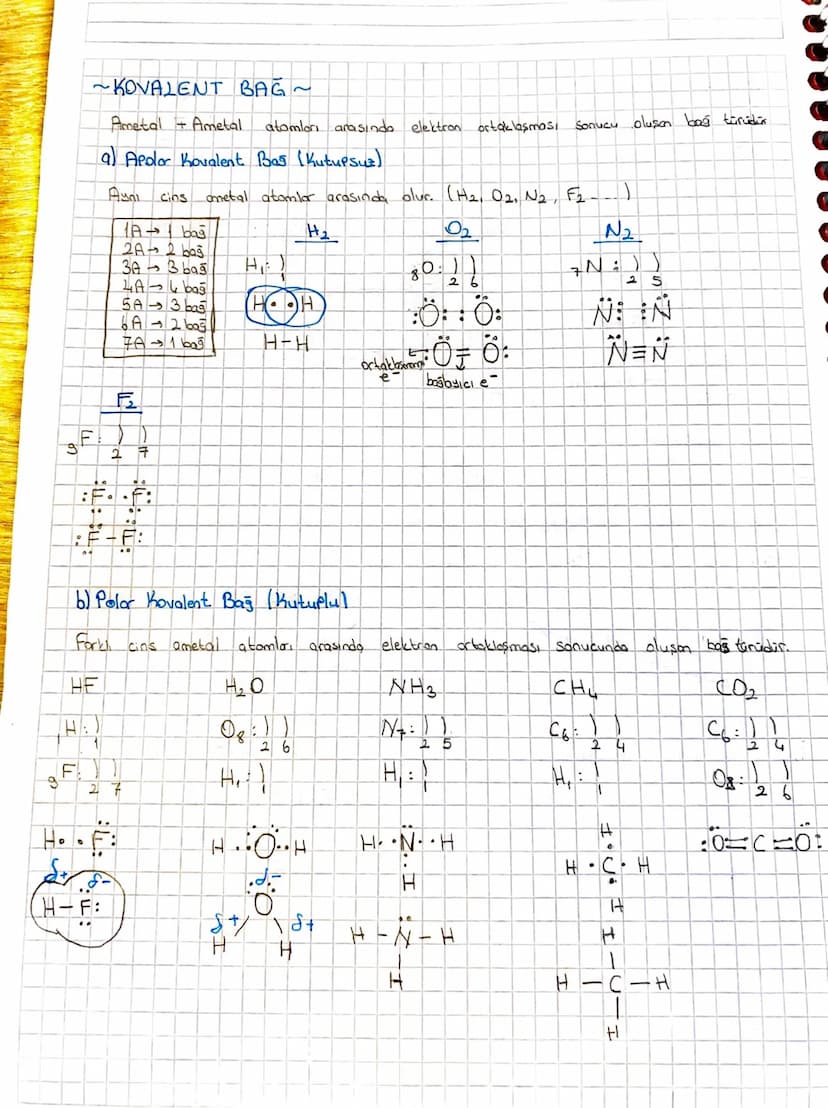 ~KOVALENT BAĞ~
Ametal + Ametal atomları arasında elektron ortaklaşması sonucu oluşan bağ türüdür
a) Apolar Kovalent Bağ (Kutupsuz)
Aynı cins ametal atomlar arasında olur. (H₂, O₂, N₂, F₂ ....)
1A → 1 bağ
2A → 2 bağ
3A → 3 bağ
4A → 4 bağ
5A → 3 bağ
6A → 2 bağ
7A → 1 bağ
H₂
H₁: )
1
H • • H
H-H
O₂
₈O: ) )
2 6
:Ö: :Ö:
:Ö = Ö:
ortaklanmamış e⁻
bağlayıcı e⁻
N₂
₇N : ) )
2 5
N̈: :N̈
N̈≡N̈
F₂
₉F: ) )
2 7
:F• •F:
:F - F:
b) Polar Kovalent Bağ (Kutuplu)
Farklı cins ametal atomları arasında elektron ortaklaşması sonucunda oluşan bağ türüdür.
HF H₂O NH₃ CH₄ CO₂
₁H: ) O₈: ) ) N₇: ) ) C₆: ) ) C₆: ) )
1 2 6 2 5 2 4 2 4
₉F: ) ) H₁: ) H₁: ) H₁: ) O₈: ) )
2 7 1 1 1 2 6
H• •F: H •:Ö:• H H• •N̈• •H
H
H
H •C• H
H
:Ö=C=Ö:
δ+ δ-
H-F:
δ-
O
δ+ δ+
H H
H - N̈ - H
|
H
H
|
H — C — H
|
H